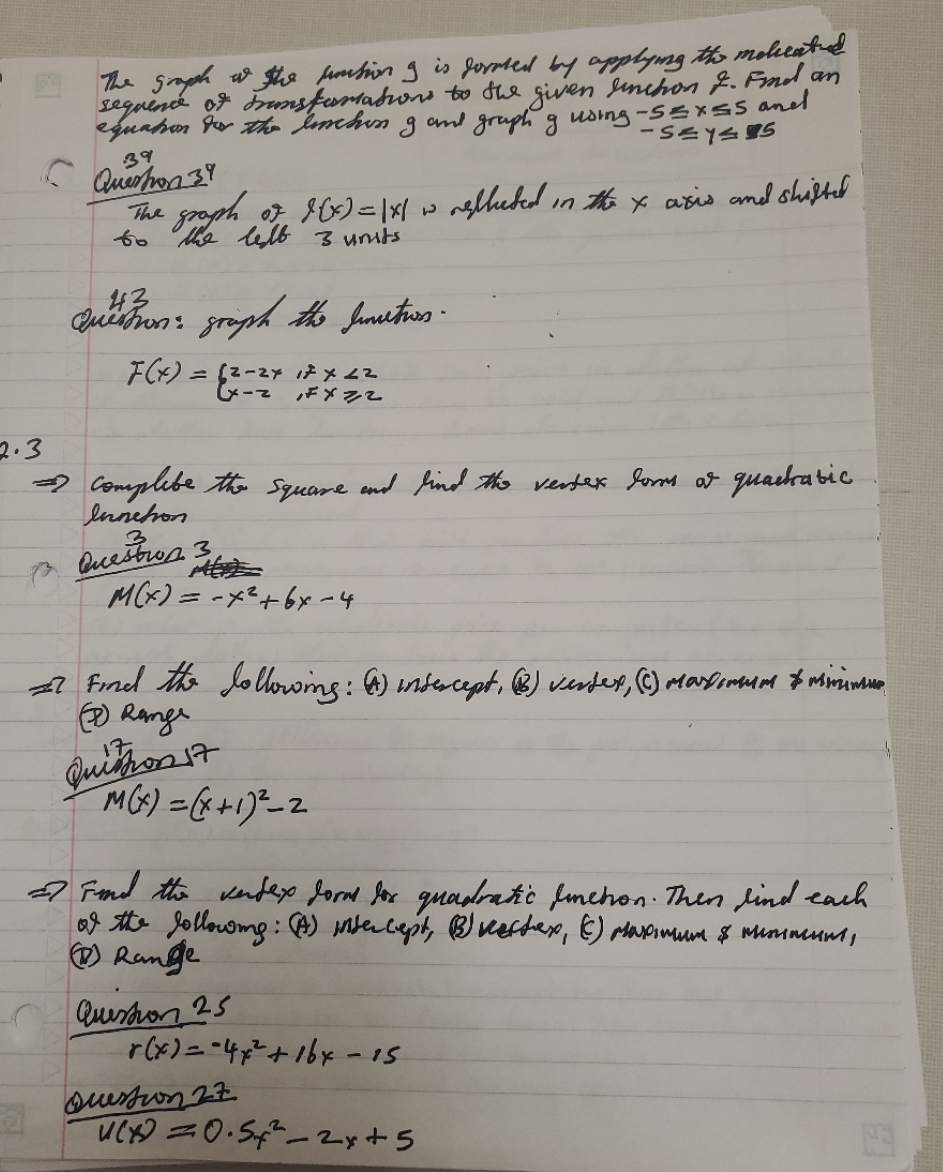 The graph of the function g is formed by applying the indicated
sequence of transformations to the given function f. Find an
equation for the function g and graph g using -5≤x≤5 and
-5≤y≤5
39
Question 39
The graph of f(x)=|x| is reflected in the x axis and shifted
to the left 3 units
43
Question: graph the function.
F(x) = {2-2x if x<2
{x-2 if x≥2
2.3
⇒ complete the square and find the vertex form of quadratic
function
3
Question 3
M(x) = -x²+6x-4
⇒ Find the following: (A) intercept, (B) vertex, (C) maximum & minimum
(D) Range
17
Question 17
M(x) = (x+1)²-2
⇒ Find the vertex form for quadratic function. Then find each
of the following: (A) intercept, (B) vertex, (C) maximum & minimum,
(D) Range
Question 25
r(x) = -4x²+16x-15
Question 27
u(x) = 0.5x²-2x+5